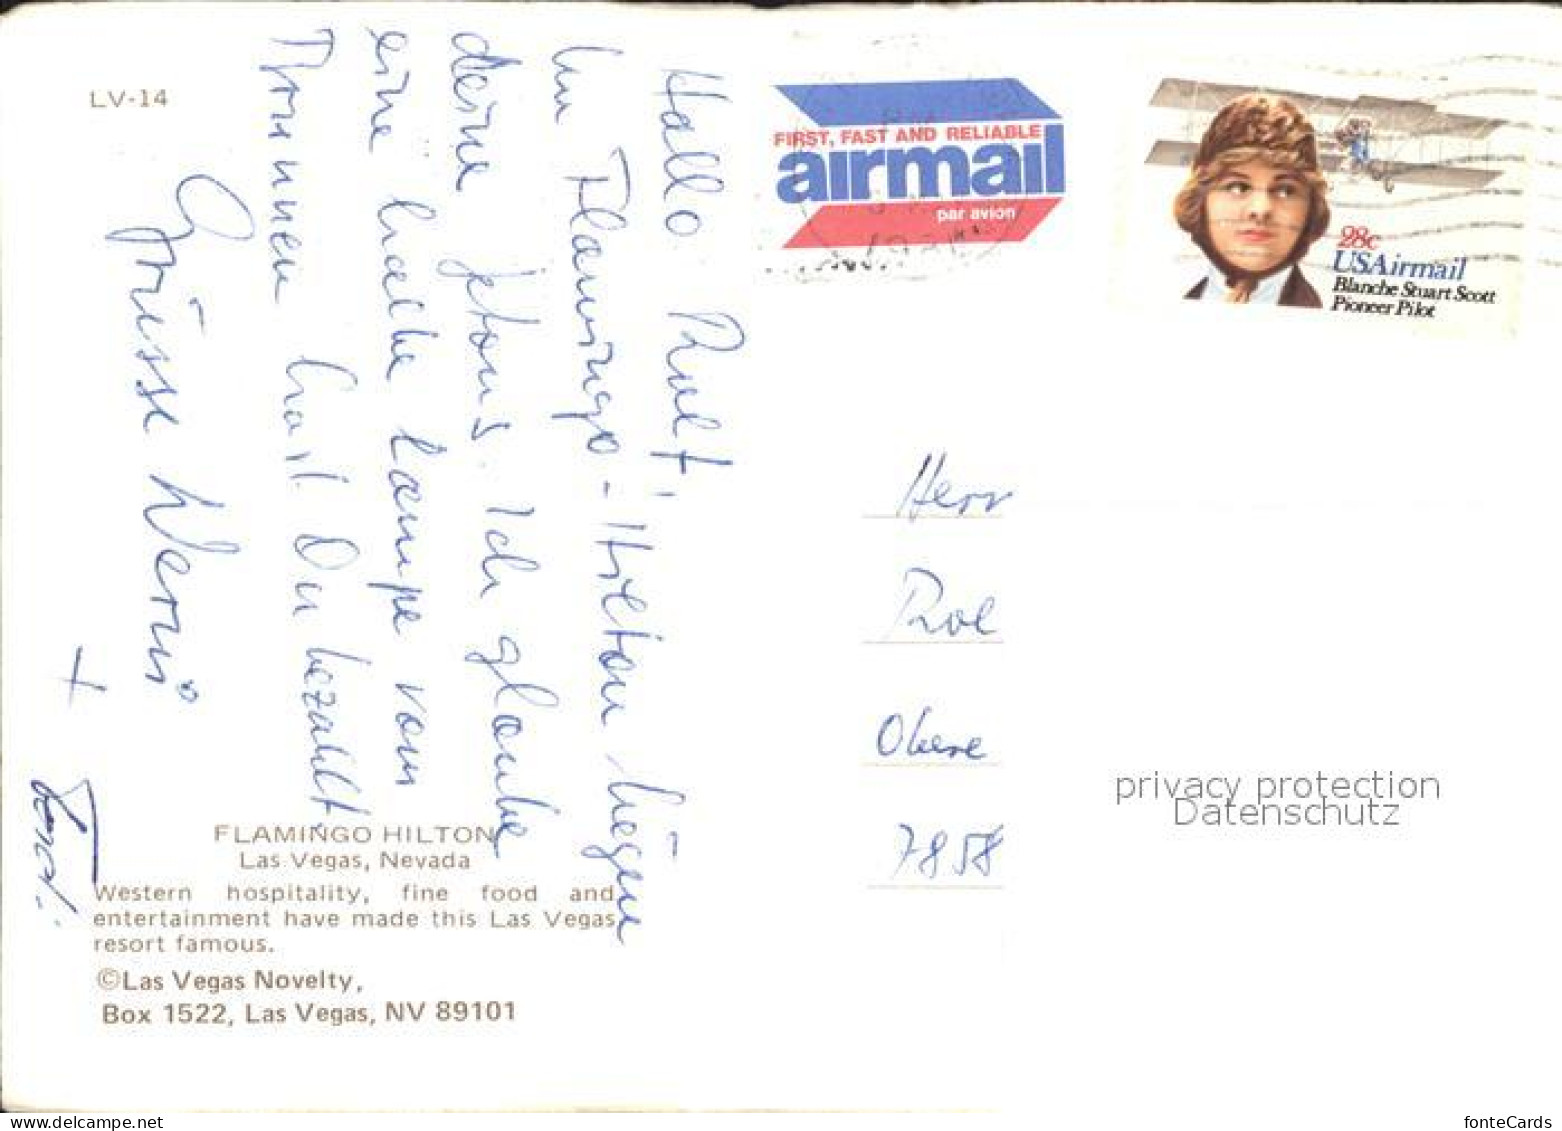 LV-14
Hallo Rolf,
Im Flamingo-Hilton liegen
deine Jetons. Ich glaube
eine halbe Lampe vom
Brunnen hast Du bezahlt.
Grüsse Werni
+
FLAMINGO HILTON
Las Vegas, Nevada
Western hospitality, fine food and
entertainment have made this Las Vegas
resort famous.
©Las Vegas Novelty,
Box 1522, Las Vegas, NV 89101
FIRST, FAST AND RELIABLE
airmail
par avion
28c
USAirmail
Blanche Stuart Scott
Pioneer Pilot
Herr
Rol
Obere
7858
privacy protection
Datenschutz
www.delcampe.net
fonteCards